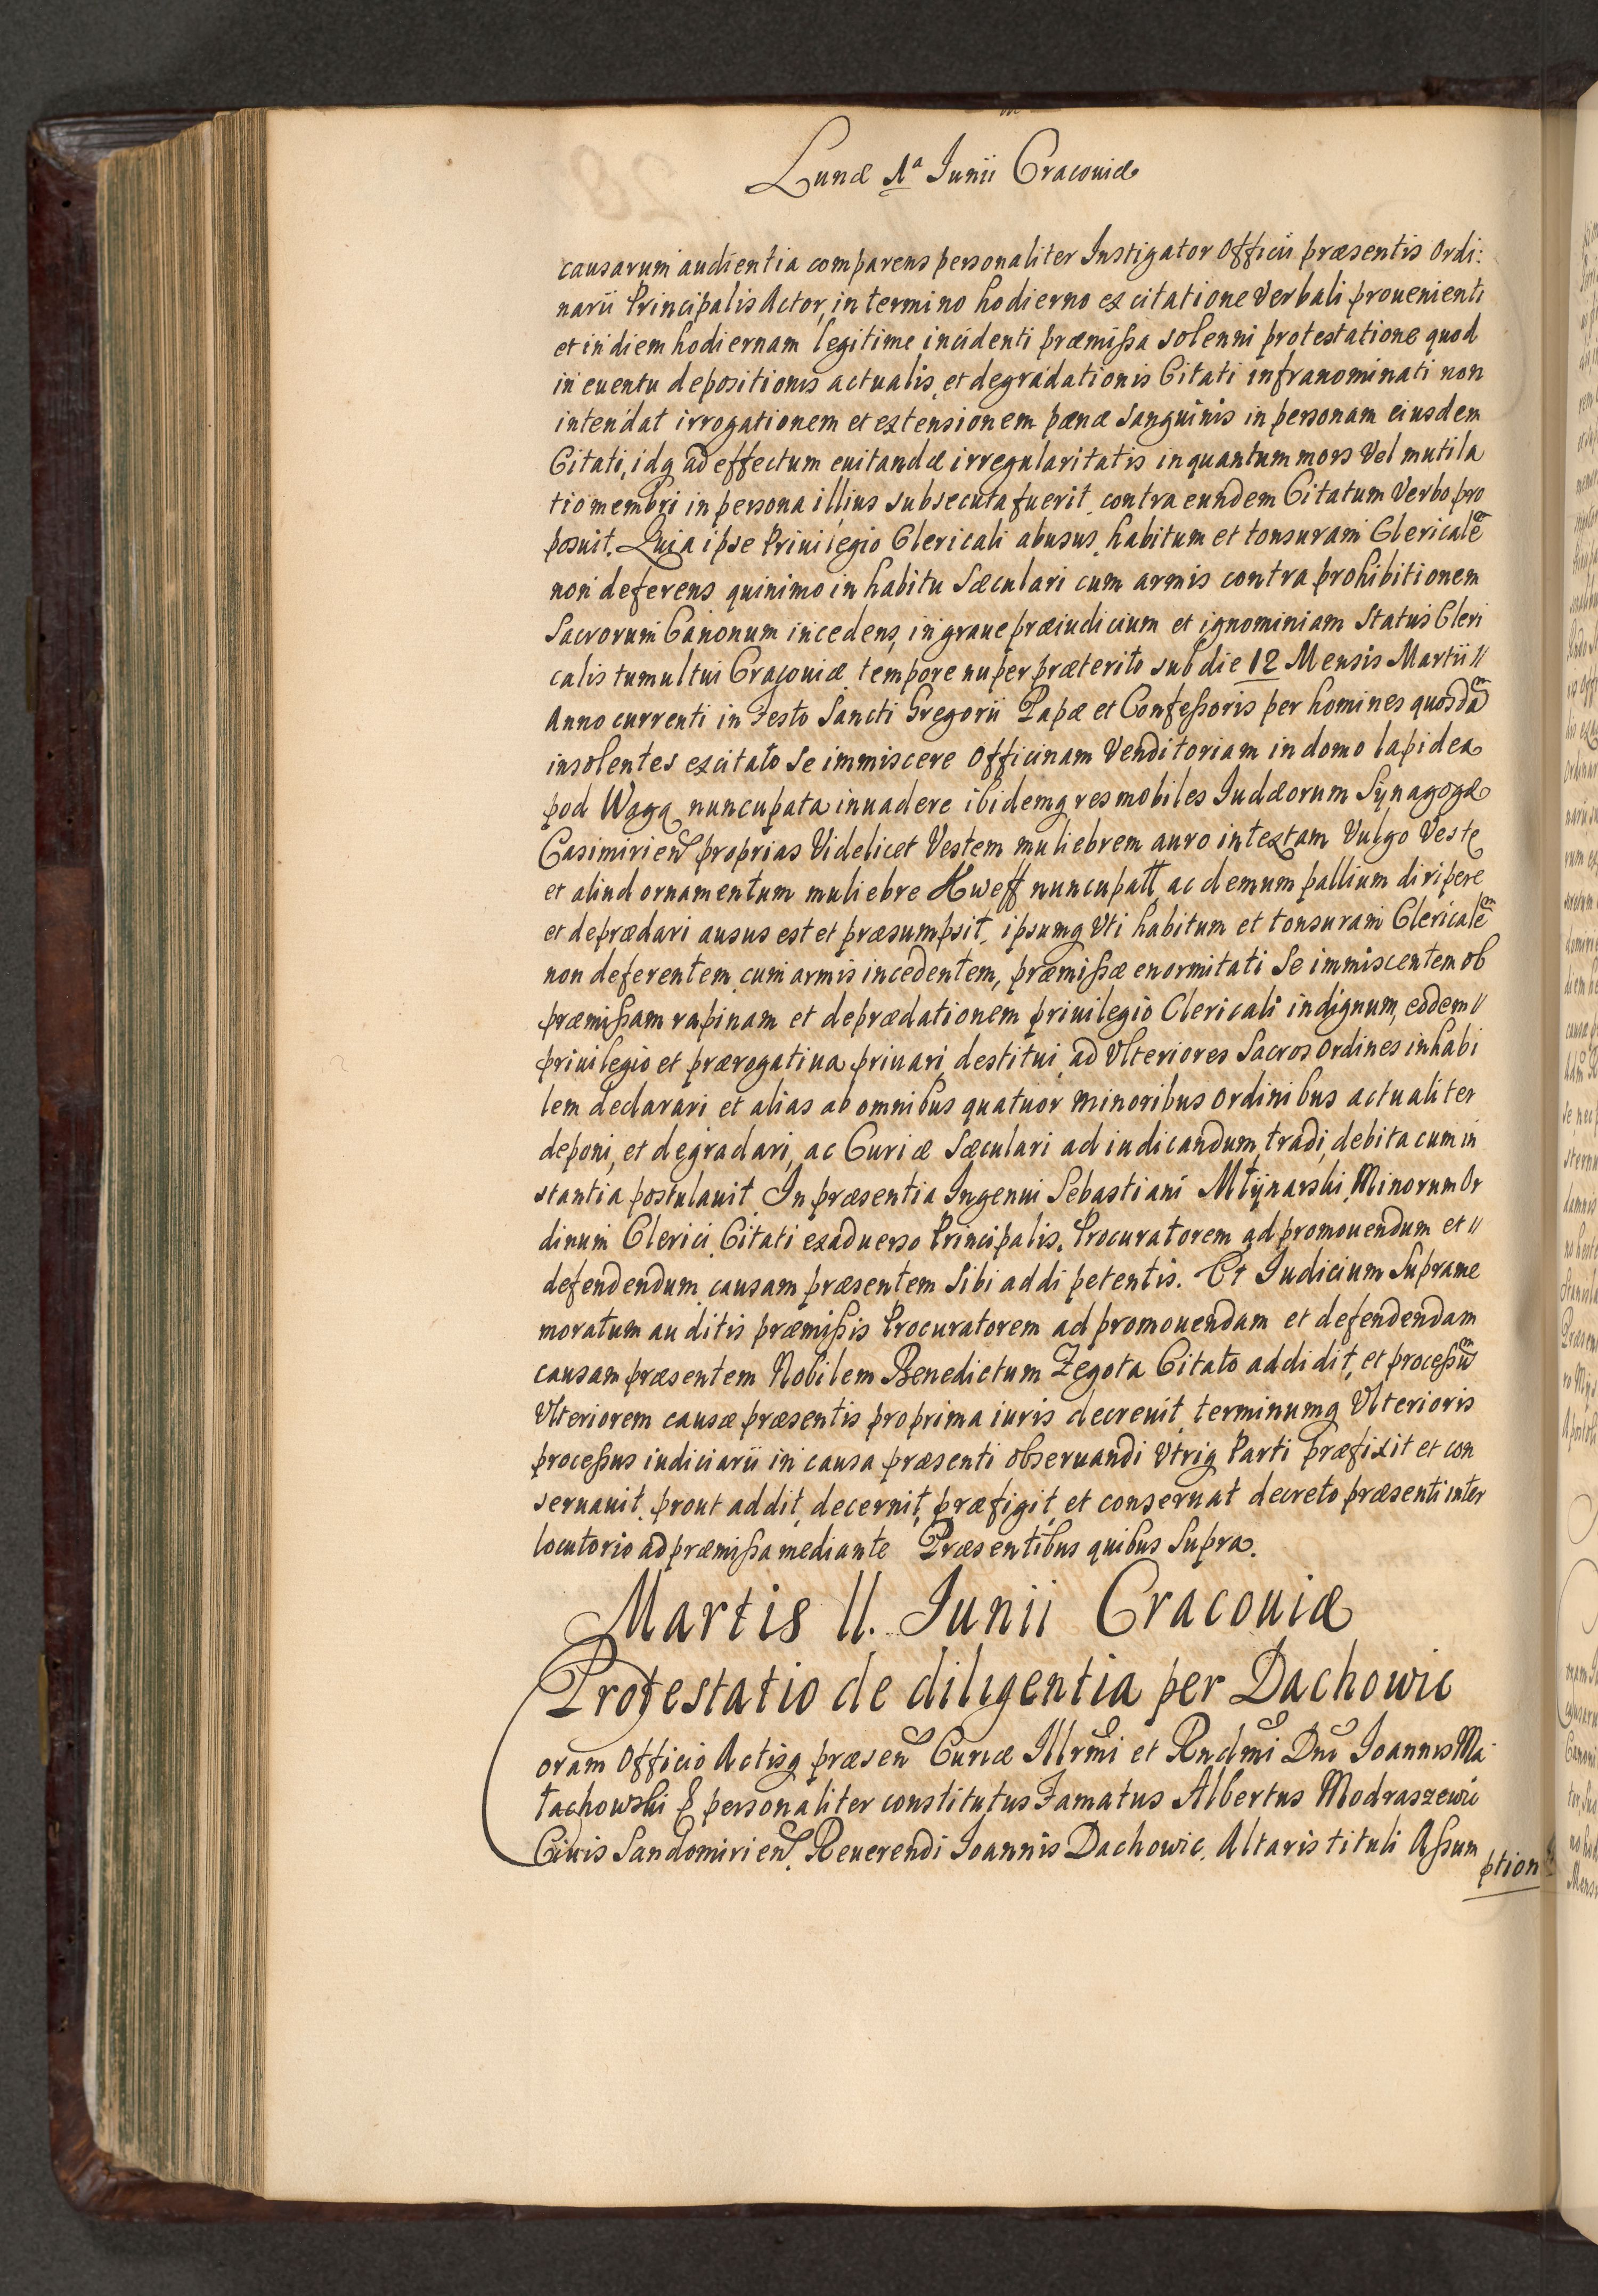 Lunæ 1ª Junii Cracouiæ
causarum audientia comparens personaliter Instigator Officii præsentis Ordi:
narii Principalis Actor, in termino hodierno ex citatione Verbali prouenienti
et in diem hodiernam legitime incidenti præmissa solenni protestatione quod
in euentu depositionis actualis, et degradationis Citati infranominati non
intendat irrogationem et extensionem pænæ sanguinis in personam eiusdem
Citati, idq ad effectum euitandæ irregularitatis inquantum mors Vel mutila
tio membri in persona illius subsecuta fuerit, contra eundem Citatum Verbo pro
posuit. Quia ipse Priuilegio Clericali abusus, habitum et tonsuram Clericalẽ
non deferens quinimo in habitu Sæculari cum armis contra prohibitionem
Sacrorum Canonum incedens, in graue præiudicium et ignominiam Status Cleri
calis tumultui Cracouiæ tempore nuper præterito sub die 12 Mensis Martii //
Anno currenti in Festo Sancti Gregorii Papæ et Confessoris per homines quosdã
insolentes excitato Se immiscere Officinam Venditoriam in domo lapidea
pod Wagą nuncupata inuadere ibidemq res mobiles Iudæorum Synagogæ
Casimirien proprias Videlicet Vestem muliebrem auro intextam Vulgo Veste
et aliud ornamentum muliebre Kweff nuncupatt, ac demum pallium diripere
et deprædari ausus est et præsumpsit, ipsumq Vti habitum et tonsuram Clericalẽ
non deferentem, cum armis incedentem, præmissæ enormitati Se immiscentem ob
præmissam rapinam et deprædationem priuilegio Clericali indignum, eodem //
priuilegio et prærogatiua priuari, destitui, ad Vlteriores Sacros Ordines inhabi
lem declarari et alias ab omnibus quatuor minoribus Ordinibus actualiter
deponi, et degradari, ac Curiæ Sæculari ad iudicandum, tradi, debita cum in
stantia postulauit. In præsentia Ingenui Sebastiani Młynarski, Minorum Or
dinum Clerici, Citati exaduerso Principalis, Procuratorem ad promouendum et //
defendendum causam præsentem Sibi addi petentis. Et Iudicium Suprame
moratum auditis præmissis Procuratorem ad promouendam et defendendam
causam præsentem Nobilem Benedictum Zegota Citato addidit, et processũ
Vlteriorem causæ præsentis pro prima iuris decreuit, terminumq Vlterioris
processus iudiciarii in causa præsenti obseruandi Vtriq Parti præfixit et con
seruauit, prout addit, decernit, præfigit, et conseruat decreto præsenti inter
locutorio ad præmissa mediante Præsentibus quibus Supra.
Martis 11. Junii Cracouiæ
Protestatio de diligentia per Dachowic
Coram Officio Actisq præsen Curiæ Illrmi et Rndmi Dni Joannis Ma
łachowski & personaliter constitutus Famatus Albertus Modraszewic
Ciuis Sandomirien, Reuerendi Joannis Dachowic, Altaris tituli Assum
ption